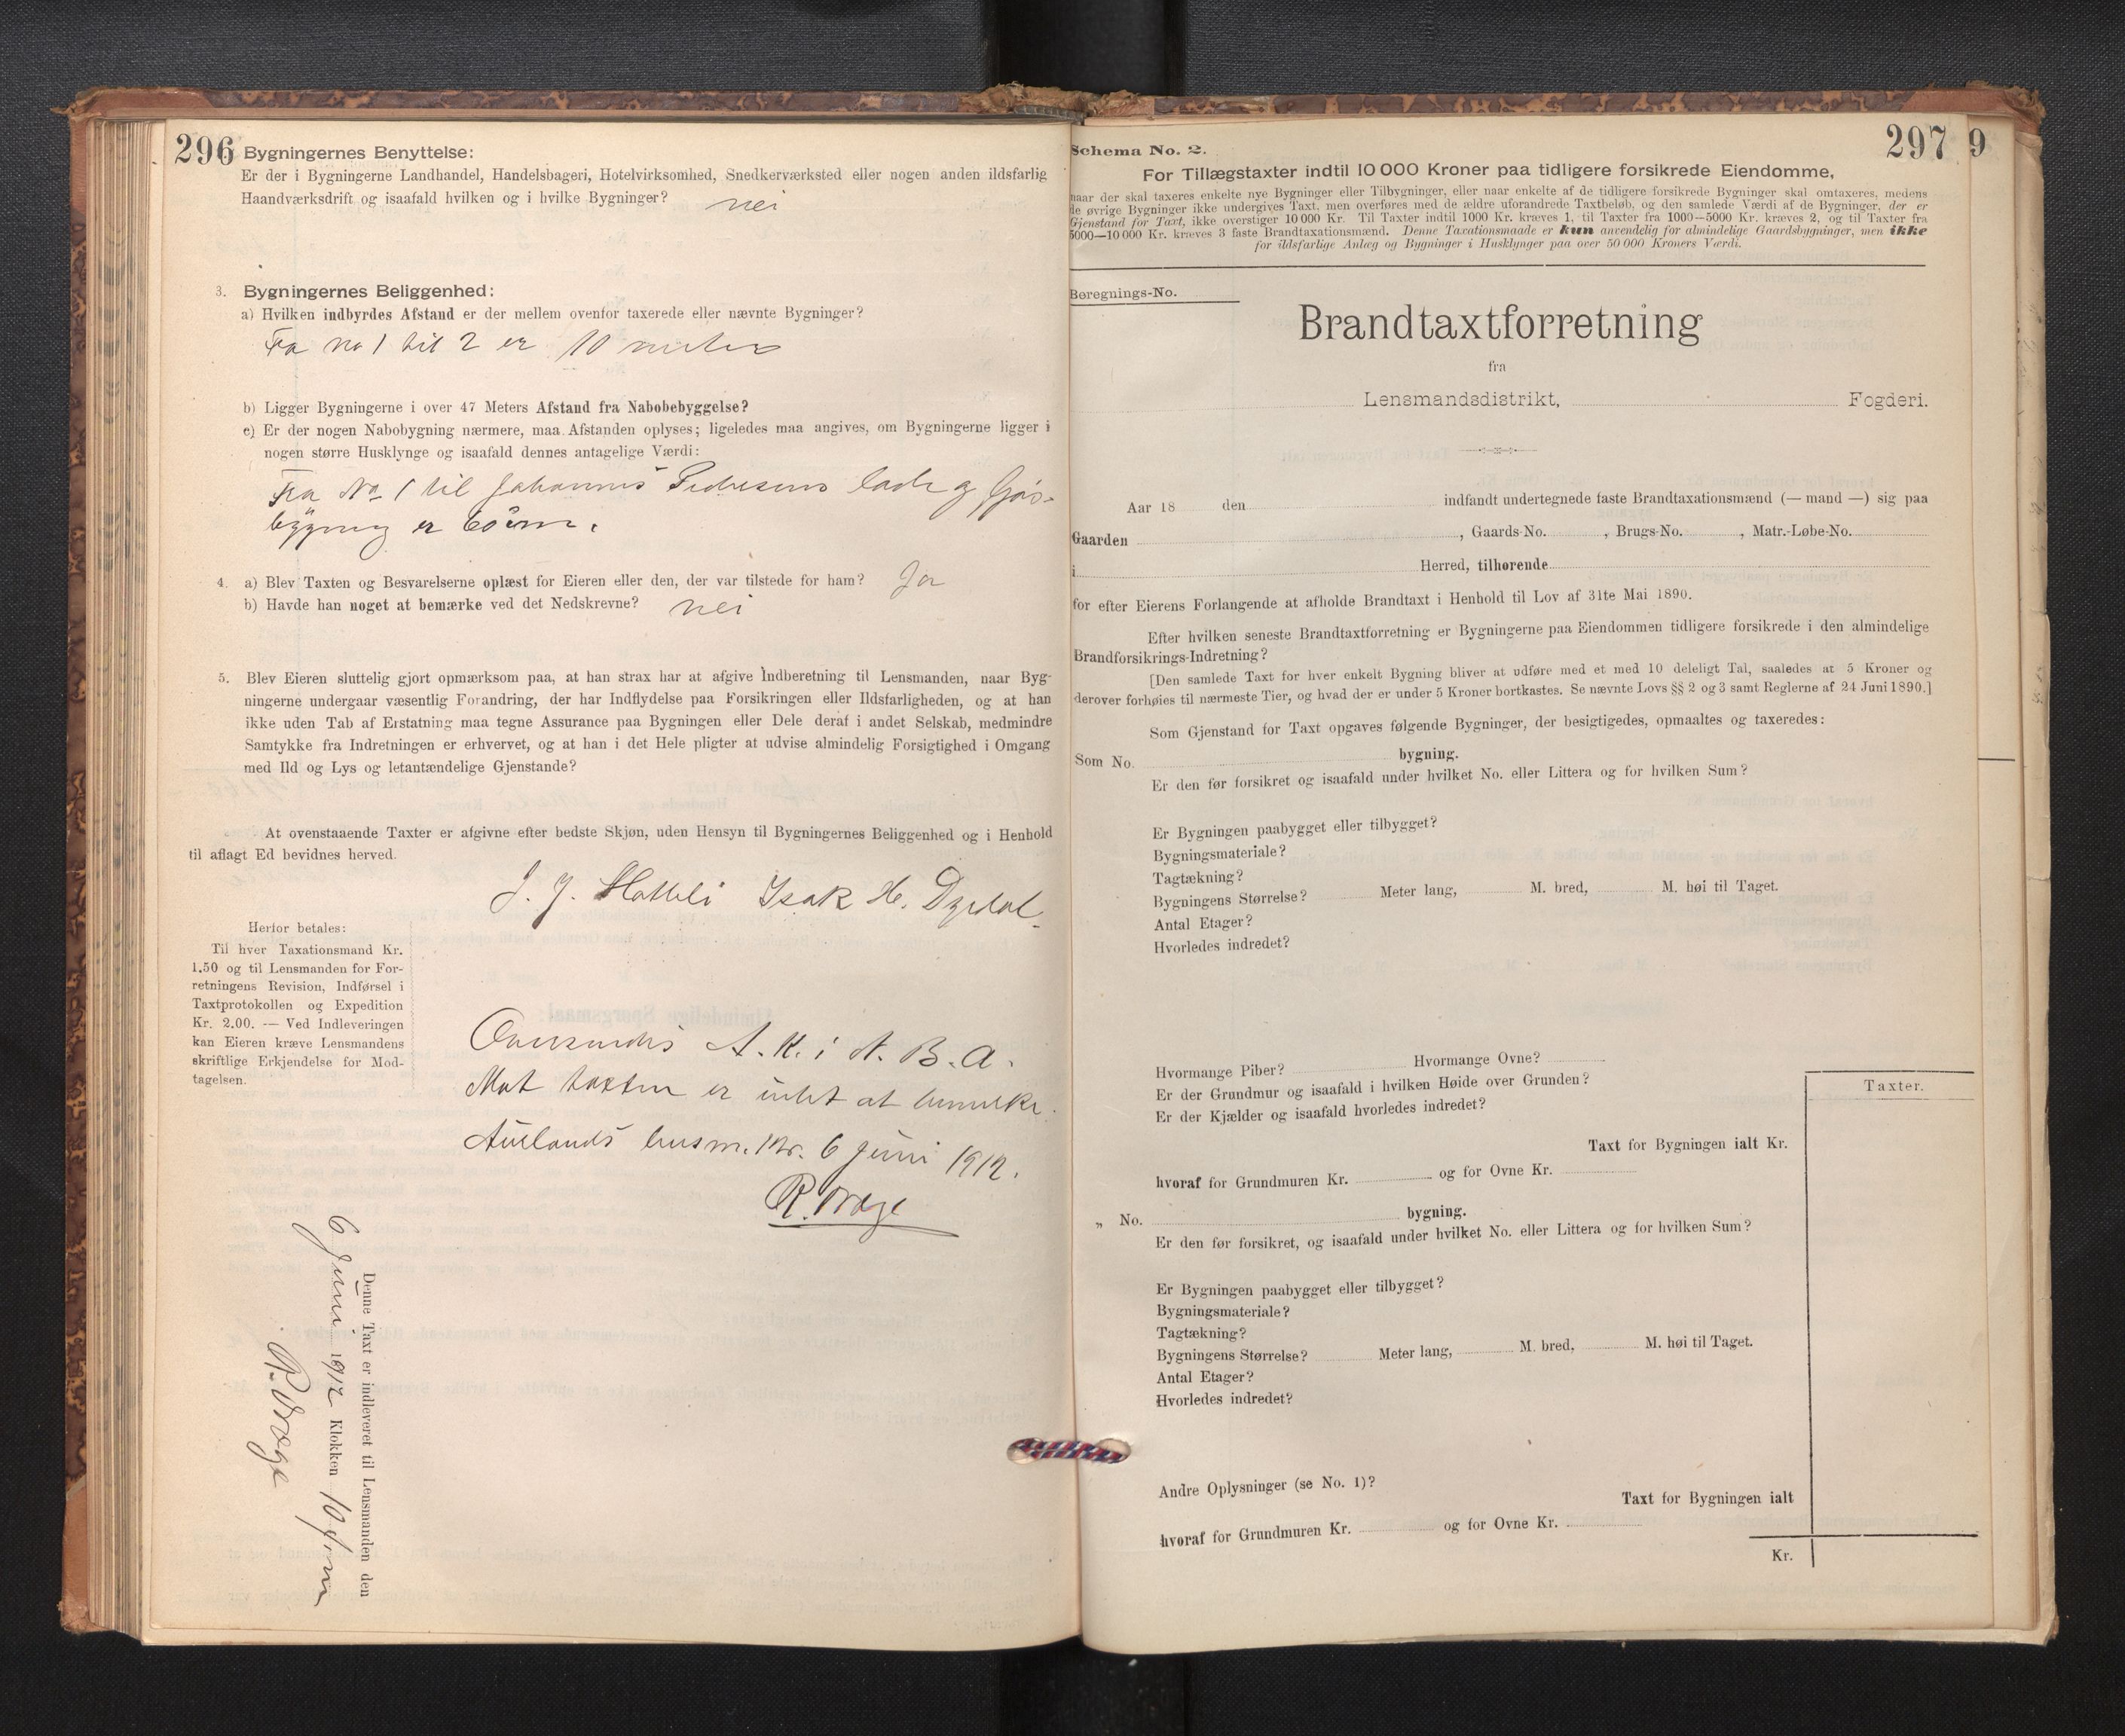 296
Bygningernes Benyttelse:
Er der i Bygningerne Landhandel, Handelsbageri, Hotelvirksomhed, Snedkerværksted eller nogen anden ildsfarlig
Haandværksdrift og isaafald hvilken og i hvilke Bygninger? nei
3. Bygningernes Beliggenhed:
a) Hvilken indbyrdes Afstand er der mellem ovenfor taxerede eller nævnte Bygninger?
Fra no 1 til 2 er 10 meter
b) Ligger Bygningerne i over 47 Meters Afstand fra Nabobebyggelse?
c) Er der nogen Nabobygning nærmere, maa Afstanden oplyses; ligeledes maa angives, om Bygningerne ligger i
nogen større Husklynge og isaafald dennes antagelige Værdi:
Fra No 1 til Johannes Pedersens lade og fjøs-
bygning er 60 m.
4. a) Blev Taxten og Besvarelserne oplæst for Eieren eller den, der var tilstede for ham? Ja
b) Havde han noget at bemærke ved det Nedskrevne? nei
5. Blev Eieren sluttelig gjort opmærksom paa, at han strax har at afgive Indberetning til Lensmanden, naar Byg-
ningerne undergaar væsentlig Forandring, der har Indflydelse paa Forsikringen eller Ildsfarligheden, og at han
ikke uden Tab af Erstatning maa tegne Assurance paa Bygningen eller Dele deraf i andet Selskab, medmindre
Samtykke fra Indretningen er erhvervet, og at han i det Hele pligter at udvise almindelig Forsigtighed i Omgang
med Ild og Lys og letantændelige Gjenstande?
At ovenstaaende Taxter er afgivne efter bedste Skjøn, uden Hensyn til Bygningernes Beliggenhed og i Henhold
til aflagt Ed bevidnes herved.
J. J. Isak H. Dyrdal
Herfor betales:
Til hver Taxationsmand Kr.
1.50 og til Lensmanden for For-
retningens Revision, Indførsel i
Taxtprotokollen og Expedition
Kr. 2.00. — Ved Indleveringen
kan Eieren kræve Lensmandens
skriftlige Erkjendelse for Mod-
tagelsen.
Oversendes A. K. i N. B. A.
Mot taxten er intet at bemerke.
Aurlands lensm.ktr. 6 juni 1912.
R. Wræge
Denne Taxt er indleveret til Lensmanden den
6 Juni 1912 Klokken 10 fm
R. Wræge
297
9
Schema No. 2.
For Tillægstaxter indtil 10 000 Kroner paa tidligere forsikrede Eiendomme,
naar der skal taxeres enkelte nye Bygninger eller Tilbygninger, eller naar enkelte af de tidligere forsikrede Bygninger skal omtaxeres, medens
de øvrige Bygninger ikke undergives Taxt, men overføres med de ældre uforandrede Taxtbeløb, og den samlede Værdi af de Bygninger, der er
Gjenstand for Taxt, ikke overstiger 10 000 Kr. Til Taxter indtil 1000 Kr. kræves 1, til Taxter fra 1000—5000 Kr. kræves 2, og til Taxter fra
5000—10 000 Kr. kræves 3 faste Brandtaxationsmænd. Denne Taxationsmaade er kun anvendelig for almindelige Gaardsbygninger, men ikke
for ildsfarlige Anlæg og Bygninger i Husklynger paa over 50 000 Kroners Værdi.
Beregnings-No.
Brandtaxtforretning
fra
Lensmandsdistrikt, Fogderi.
Aar 18 den indfandt undertegnede faste Brandtaxationsmænd (— mand —) sig paa
Gaarden , Gaards-No. , Brugs-No. , Matr.-Løbe-No.
i Herred, tilhørende
for efter Eierens Forlangende at afholde Brandtaxt i Henhold til Lov af 31te Mai 1890.
Efter hvilken seneste Brandtaxtforretning er Bygningerne paa Eiendommen tidligere forsikrede i den almindelige
Brandforsikrings-Indretning?
[Den samlede Taxt for hver enkelt Bygning bliver at udføre med et med 10 deleligt Tal, saaledes at 5 Kroner og
derover forhøies til nærmeste Tier, og hvad der er under 5 Kroner bortkastes. Se nævnte Lovs §§ 2 og 3 samt Reglerne af 24 Juni 1890.]
Som Gjenstand for Taxt opgaves følgende Bygninger, der besigtigedes, opmaaltes og taxeredes:
Som No. bygning.
Er den før forsikret og isaafald under hvilket No. eller Littera og for hvilken Sum?
Er Bygningen paabygget eller tilbygget?
Bygningsmateriale?
Tagtækning?
Bygningens Størrelse? Meter lang, M. bred, M. høi til Taget.
Antal Etager?
Hvorledes indredet?
Hvormange Piber? Hvormange Ovne?
Er der Grundmur og isaafald i hvilken Høide over Grunden?
Er der Kjælder og isaafald hvorledes indredet?
Taxter.
Taxt for Bygningen ialt Kr.
hvoraf for Grundmuren Kr. og for Ovne Kr.
„ No. bygning.
Er den før forsikret, og isaafald under hvilket No. eller Littera og for hvilken Sum?
Er Bygningen paabygget eller tilbygget?
Bygningsmateriale?
Tagtækning?
Bygningens Størrelse? Meter lang, M. bred, M. høi til Taget.
Antal Etager?
Hvorledes indredet?
Andre Oplysninger (se No. 1)?
Taxt for Bygningen ialt
hvoraf for Grundmuren Kr. og for Ovne Kr.
Kr.